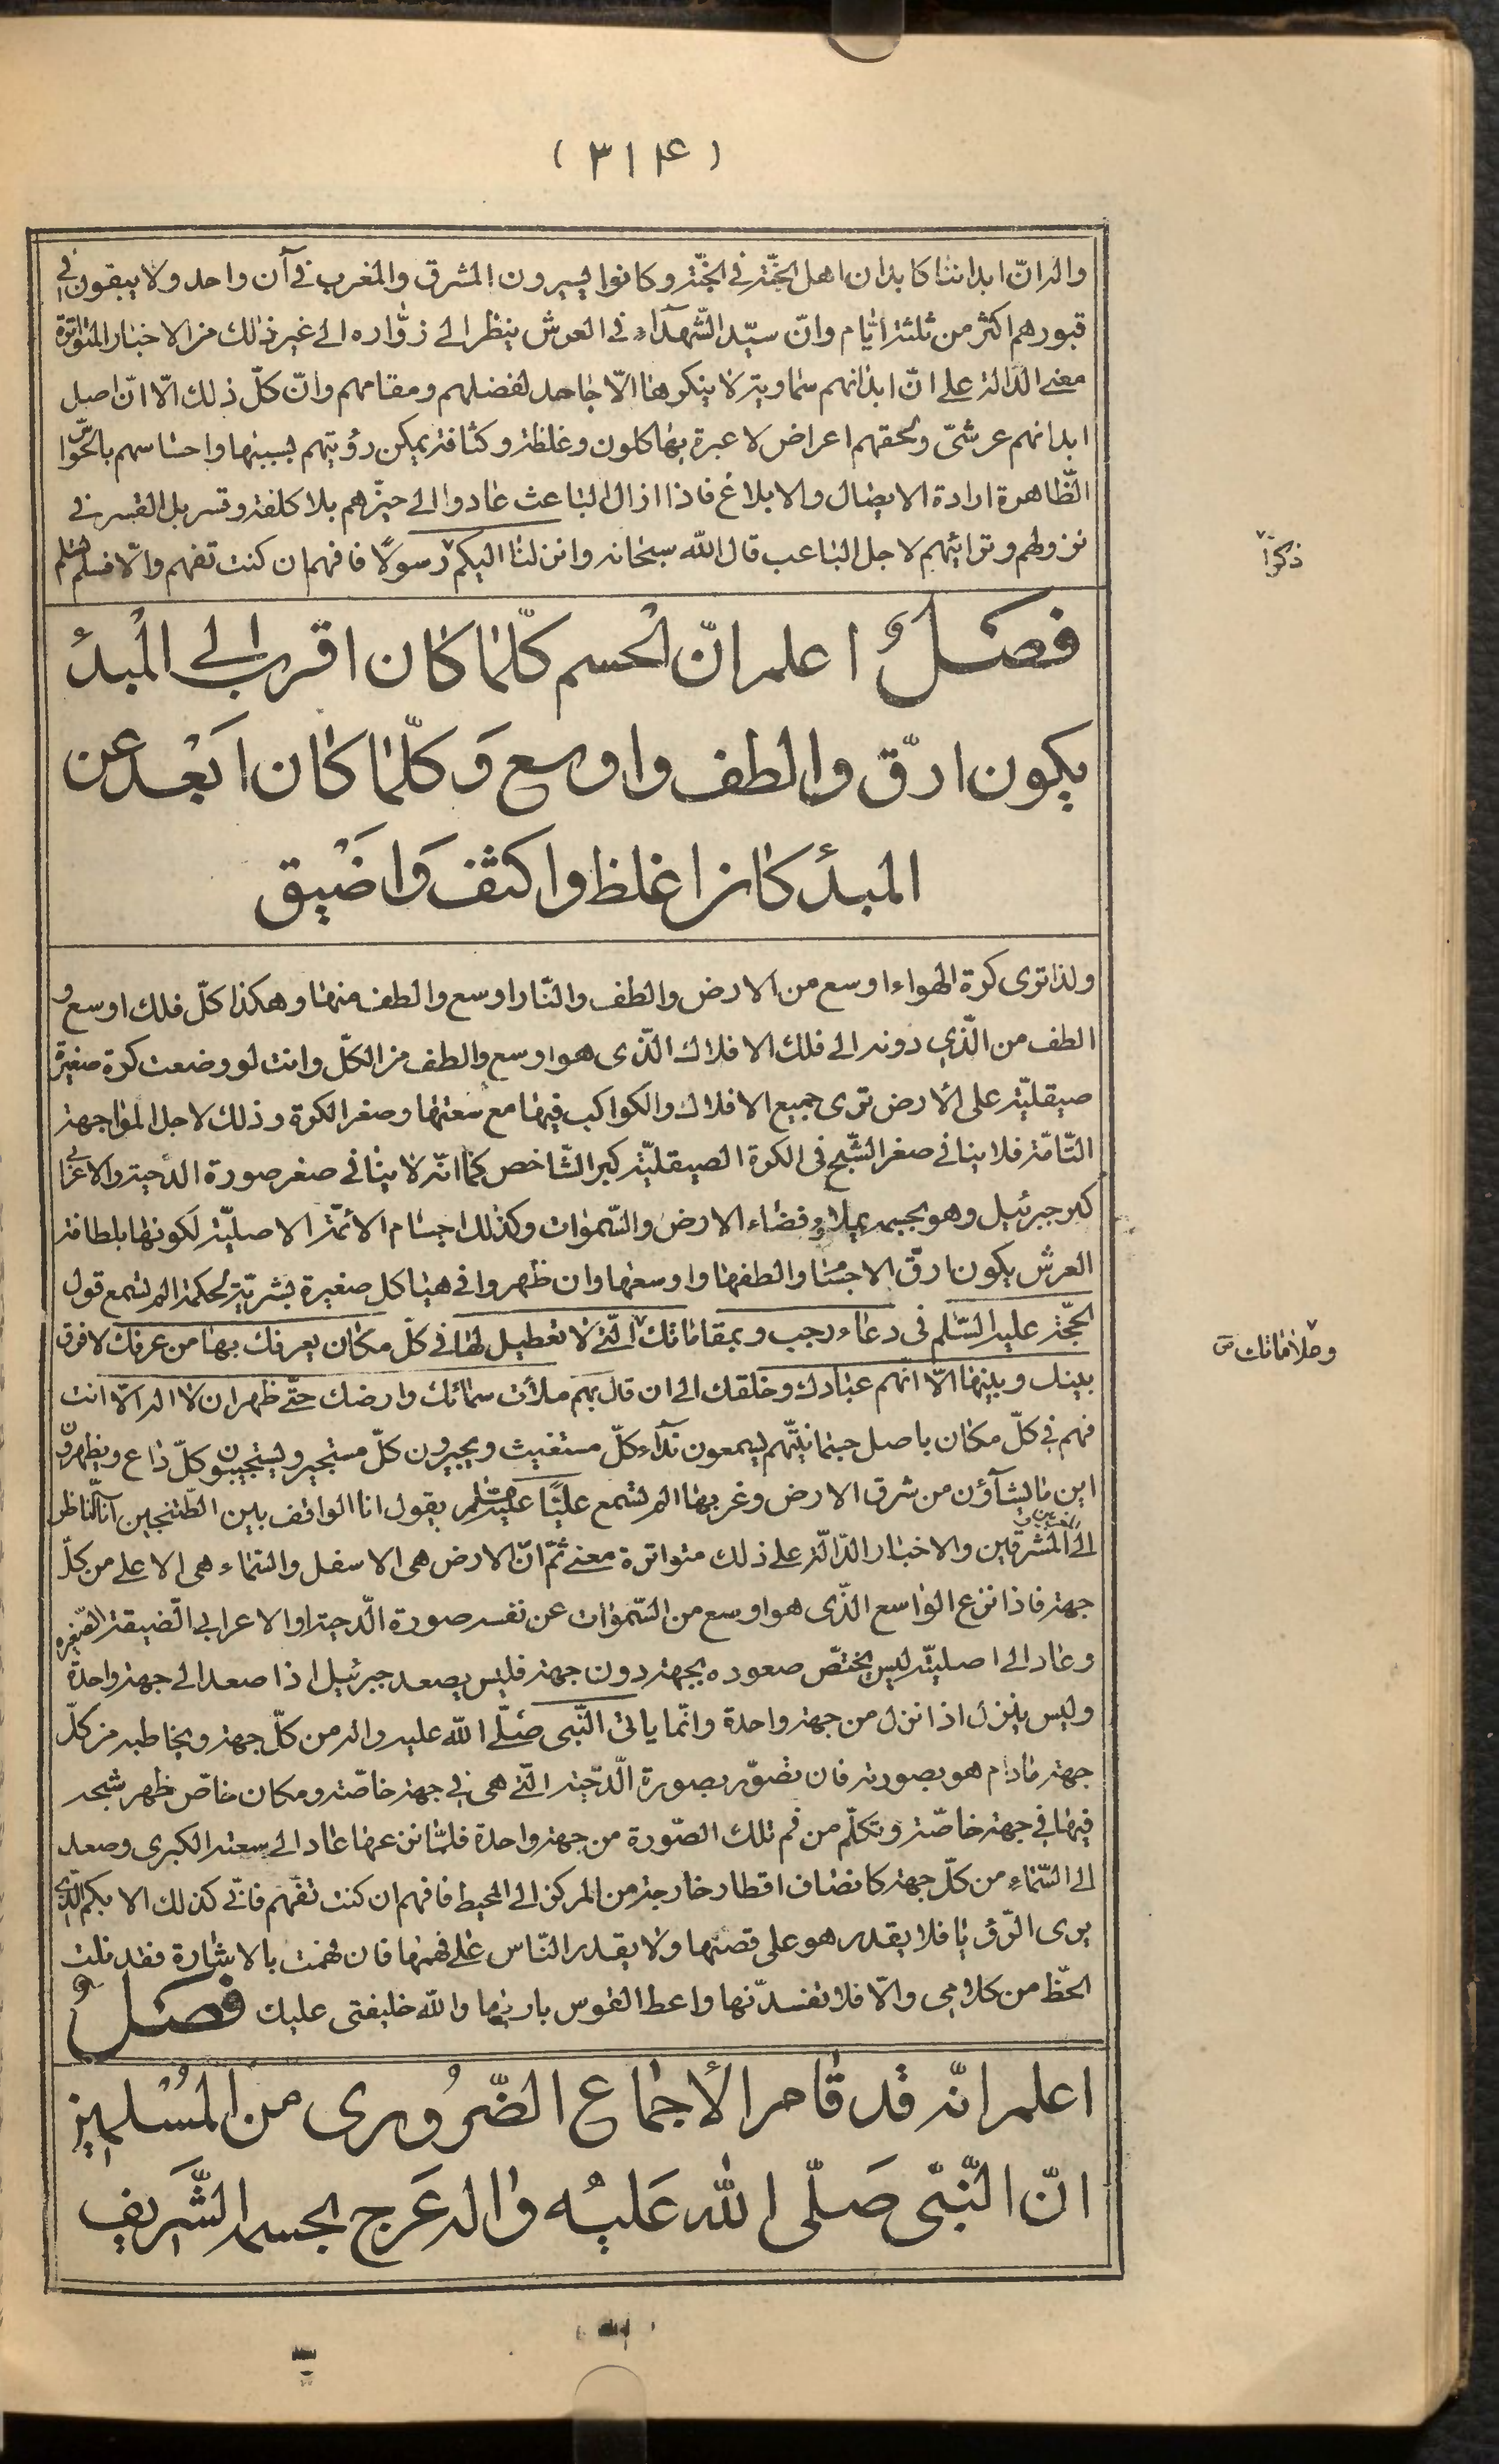 ( ٣١٤ )
والدانّ ابداننا كابدان اهل الجنّة فى الجنّة وكانوا يسيرون المشرق والمغرب فى آن واحد ولا يبقون فى
قبورهم اكثر من ثلثة ايّام وانّ سيّد الشّهدآء فى العرش ينظر الى زوّاره الى غير ذلك من الاخبار المتواترة
معنى الدّالة على انّ ابدانهم سماوية لا ينكرها الّا جاحد لفضلهم ومقامهم وانّ كلّ ذلك الّا انّ اصل
ابدانهم عرشىّ ولحقهم اعراض لا عبرة بها كلون وغلظة وكثافة يمكن رؤيتهم بسببها واحساسهم بالحواسّ
الظّاهرة ارادة الايصال والابلاغ فاذا ازال الباعث عادوا الى حيّزهم بلا كلفة وقسر بل القسر فى
نزولهم وترائيهم لاجل الباعب قال اللّه سبحانه وانزلنا اليكم رسولًا فافهم ان كنت تفهم والّا فسلّم تسلم
ذكرًا
فصلٌ اعلم انّ الجسم كلّما كان اقرب الى المبدأ
يكون ارقّ والطف واوسع وَكلّما كان ابَعْد عن
المبدأ كان اغلظ واكثف وَاضْيق
ولذا ترى كرة الهواء اوسع من الارض والطف والنّار اوسع والطف منها وهكذا كلّ فلك اوسع و
الطف من الّذي دونه الى فلك الافلاك الّذى هو اوسع والطف من الكلّ وانت لو وضعت كرة صغيرة
صيقليّة على الارض ترى جميع الافلاك والكواكب فيها مع سعتها وصغر الكرة وذلك لاجل المواجهة
التّامّة فلا ينافى صغر الشّبح فى الكرة الصيقليّة كبر الشّاخص كما انّه لا ينافى صغر صورة الدّحية والاعرابى
كبر جبرئيل وهو بجسمه يملأ فضاء الارض والسّموات وكذلك اجسام الأئمّة الاصليّة لكونها بلطافة
العرش يكون ارقّ الاجسام والطفها واوسعها وان ظهروا فى هياكل صغيرة بشريّة لحكمة الم تسمع قول
الحجّة عليه السّلم فى دعاء رجب وبمقاماتك الّتى لا تعطيل لها فى كلّ مكان يعرفك بها من عرفك لا فرق
وعلاماتك ص
بينك وبينها الّا انّهم عبادك وخلقك الى ان قال بهم ملأت سمائك وارضك حتّى ظهر ان لا اله الّا انت
فهم فى كلّ مكان باصل جسمانيّتهم يسمعون ندآء كلّ مستغيث ويجيرون كلّ مستجير ويستجيبون كلّ داع ويظهرون
اين ما يشآؤن من شرق الارض وغربها الم تسمع عليًّا عليه السّلم يقول انا الواقف بين الطّتنجين انا النّاظر
الى المشرقين والاخبار الدّالّة على ذلك متواترة معنى ثمّ انّ الارض هى الاسفل والسّماء هى الاعلى من كلّ
جهة فاذا نزع الواسع الّذى هو اوسع من السّموات عن نفسه صورة الدّحية او الاعرابى الضّيقة الصّغيره
وعاد الى اصليّته ليس يختصّ صعوده بجهة دون جهة فليس يصعد جبرئيل اذا صعد الى جهة واحدة
وليس ينزل اذا نزل من جهة واحدة وانّما ياتى النّبى صلّى اللّه عليه واله من كلّ جهة ويخاطبه من كلّ
جهة مادام هو بصورته فان تصوّر بصورة الدّحية الّتى هى فى جهة خاصّة ومكان خاصّ ظهر شبحه
فيها فى جهة خاصّة وتكلّم من فم تلك الصّورة من جهة واحدة فلمّا نزعها عاد الى سعته الكبرى وصعد
الى السّماء من كلّ جهة كانصاف اقطار خارجة من المركز الى المحيط فافهم ان كنت تفهم فانّى كذلك الابكم الّذى
يرى الرّؤيا فلا يقدر هو على قصّتها ولا يقدر النّاس على فهمها فان فهمت بالاشارة فقد نلت
الحظّ من كلامى والّا فلا تفسدنّها واعط القوس باريها واللّه خليفتى عليك فصلٌ
اعلم انّه قد قام الأجماع الضّرُورى من المُسْلمين
انّ النّبىّ صَلّى اللّه عَليْه واله عَرج بجسمه الشَّريف